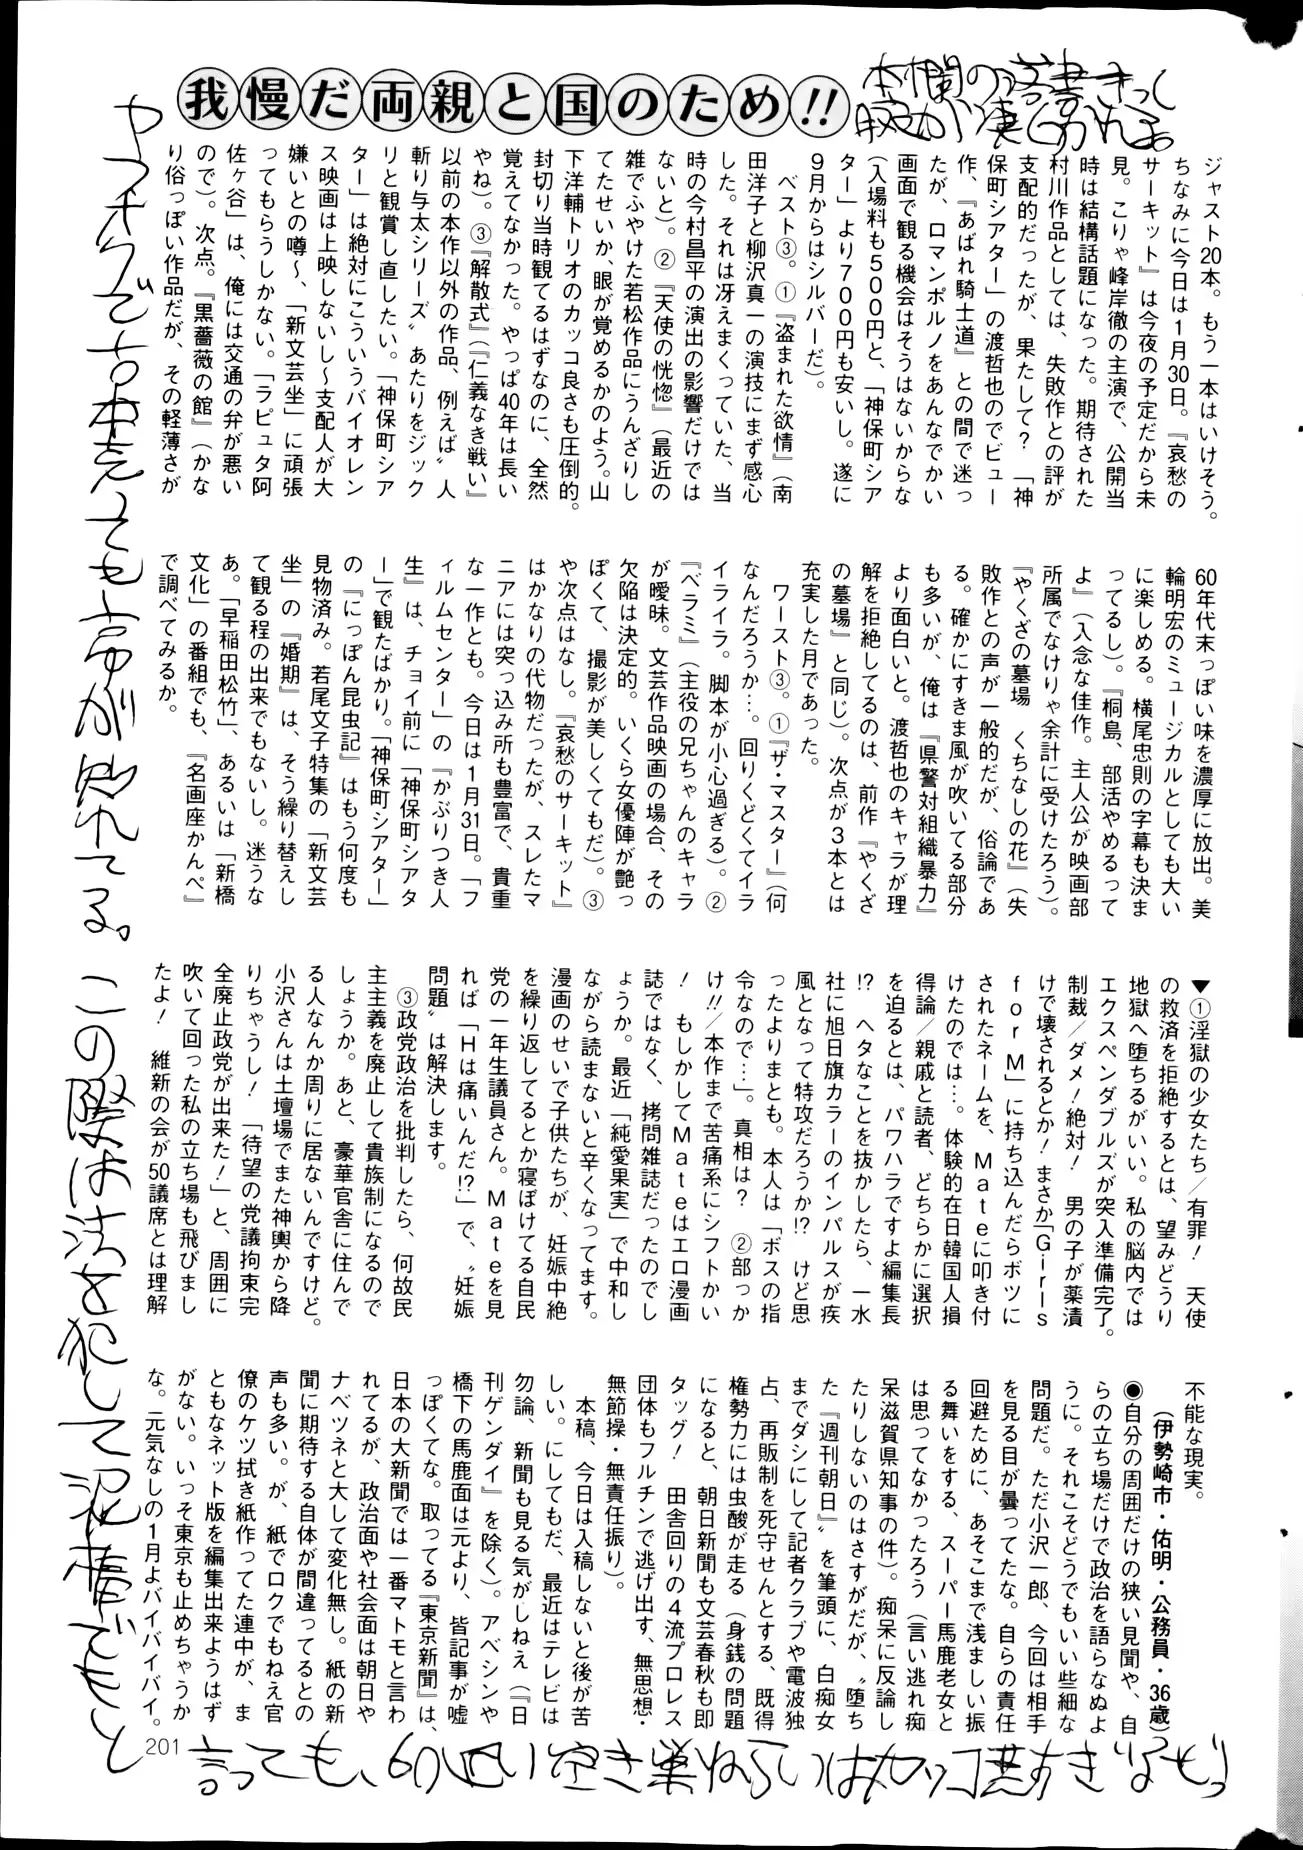 我慢だ両親と国のため!!
ジャスト20本。もう一本はいけそう。
ちなみに今日は1月30日。『哀愁の
サーキット』は今夜の予定だから未
見。こりゃ峰岸徹の主演で、公開当
時は結構話題になった。期待された
村川作品としては、失敗作との評が
支配的だったが、果たして?「神
保町シアター」の渡哲也のでビュー
作、『あばれ騎士道』との間で迷っ
たが、ロマンポルノをあんなでかい
画面で観る機会はそうはないからな
(入場料も500円と、「神保町シア
ター」より700円も安いし。遂に
9月からはシルバーだ)。
ベスト③。①『盗まれた欲情』(南
田洋子と柳沢真一の演技にまず感心
した。それは冴えまくっていた、当
時の今村昌平の演出の影響だけでは
ないと)。②『天使の恍惚』(最近の
雑でふやけた若松作品にうんざりし
てたせいか、眼が覚めるかのよう。山
下洋輔トリオのカッコ良さも圧倒的。
封切り当時観てるはずなのに、全然
覚えてなかった。やっぱ40年は長い
やね)。③『解散式』(『仁義なき戦い』
以前の本作以外の作品、例えば〝人
斬り与太シリーズ〟あたりをジック
リと観賞し直したい。「神保町シア
ター」は絶対にこういうバイオレン
ス映画は上映しないし〜支配人が大
嫌いとの噂〜、「新文芸坐」に頑張
ってもらうしかない。「ラピュタ阿
佐ヶ谷」は、俺には交通の弁が悪い
ので)。次点。『黒薔薇の館』(かな
り俗っぽい作品だが、その軽薄さが
60年代末っぽい味を濃厚に放出。美
輪明宏のミュージカルとしても大い
に楽しめる。横尾忠則の字幕も決ま
ってるし)。『桐島、部活やめるって
よ』(入念な佳作。主人公が映画部
所属でなけりゃ余計に受けたろう)。
『やくざの墓場 くちなしの花』(失
敗作との声が一般的だが、俗論であ
る。確かにすきま風が吹いてる部分
も多いが、俺は『県警対組織暴力』
より面白いと。渡哲也のキャラが理
解を拒絶してるのは、前作『やくざ
の墓場』と同じ)。次点が3本とは
充実した月であった。
ワースト③。①『ザ・マスター』(何
なんだろうか…。回りくどくてイラ
イライラ。脚本が小心過ぎる)。②
『ベラミ』(主役の兄ちゃんのキャラ
が曖昧。文芸作品映画の場合、その
欠陥は決定的。いくら女優陣が艶っ
ぽくて、撮影が美しくてもだ)。③
や次点はなし。『哀愁のサーキット』
はかなりの代物だったが、スレたマ
ニアには突っ込み所も豊富で、貴重
な一作とも。今日は1月31日。「フ
ィルムセンター」の『かぶりつき人
生』は、チョイ前に「神保町シアタ
ー」で観たばかり。「神保町シアター」
の『にっぽん昆虫記』はもう何度も
見物済み。若尾文子特集の「新文芸
坐」の『婚期』は、そう繰り替えし
て観る程の出来でもないし。迷うな
あ。「早稲田松竹」、あるいは「新橋
文化」の番組でも、『名画座かんぺ』
で調べてみるか。
▼①淫獄の少女たち/有罪! 天使
の救済を拒絶するとは、望みどうり
地獄へ堕ちるがいい。私の脳内では
エクスペンダブルズが突入準備完了。
制裁/ダメ!絶対! 男の子が薬漬
けで壊されるとか!まさか「Girls
for M」に持ち込んだらボツに
されたネームを、Mateに叩き付
けたのでは…。体験的在日韓国人損
得論/親戚と読者、どちらかに選択
を迫るとは、パワハラですよ編集長
!? ヘタなことを抜かしたら、一水
社に旭日旗カラーのインパルスが疾
風となって特攻だろうか!? けど思
ったよりまとも。本人は「ボスの指
令なので…」。真相は? ②部っか
け!!/本作まで苦痛系にシフトかい
! もしかしてMateはエロ漫画
誌ではなく、拷問雑誌だったのでし
ょうか。最近「純愛果実」で中和し
ながら読まないと辛くなってます。
漫画のせいで子供たちが、妊娠中絶
を繰り返してるとか寝ぼけてる自民
党の一年生議員さん。Mateを見
れば「Hは痛いんだ!?」で、〝妊娠
問題〟は解決します。
③政党政治を批判したら、何故民
主主義を廃止して貴族制になるので
しょうか。あと、豪華官舎に住んで
る人なんか周りに居ないんですけど。
小沢さんは土壇場でまた神輿から降
りちゃうし!「待望の党議拘束完
全廃止政党が出来た!」と、周囲に
吹いて回った私の立ち場も飛びまし
たよ! 維新の会が50議席とは理解
不能な現実。
(伊勢崎市・佑明・公務員・36歳)
◉自分の周囲だけの狭い見聞や、自
らの立ち場だけで政治を語らなぬよ
うに。それこそどうでもいい些細な
問題だ。ただ小沢一郎、今回は相手
を見る目が曇ってたな。自らの責任
回避ために、あそこまで浅ましい振
る舞いをする、スーパー馬鹿老女と
は思ってなかったろう(言い逃れ痴
呆滋賀県知事の件)。痴呆に反論し
たりしないのはさすがだが、〝堕ち
た『週刊朝日』〟を筆頭に、白痴女
までダシにして記者クラブや電波独
占、再販制を死守せんとする、既得
権勢力には虫酸が走る(身銭の問題
になると、朝日新聞も文芸春秋も即
タッグ! 田舎回りの4流プロレス
団体もフルチンで逃げ出す、無思想・
無節操・無責任振り)。
本稿、今日は入稿しないと後が苦
しい。にしてもだ、最近はテレビは
勿論、新聞も見る気がしねえ(『日
刊ゲンダイ』を除く)。アベシンや
橋下の馬鹿面は元より、皆記事が嘘
っぽくてな。取ってる『東京新聞』は、
日本の大新聞では一番マトモと言わ
れてるが、政治面や社会面は朝日や
ナベツネと大して変化無し。紙の新
聞に期待する自体が間違ってるとの
声も多い。が、紙でロクでもねえ官
僚のケツ拭き紙作ってた連中が、ま
ともなネット版を編集出来ようはず
がない。いっそ東京も止めちゃうか
な。元気なしの1月よバイバイバイ。
201
本欄の落書きって
腕が凄くつかれるぉ
ヤフオクで古本売っても高が知れてる。この際は法を犯して泥棒でもと
言っても、60近い空き巣ねらいはカッコ悪すぎなぞっ